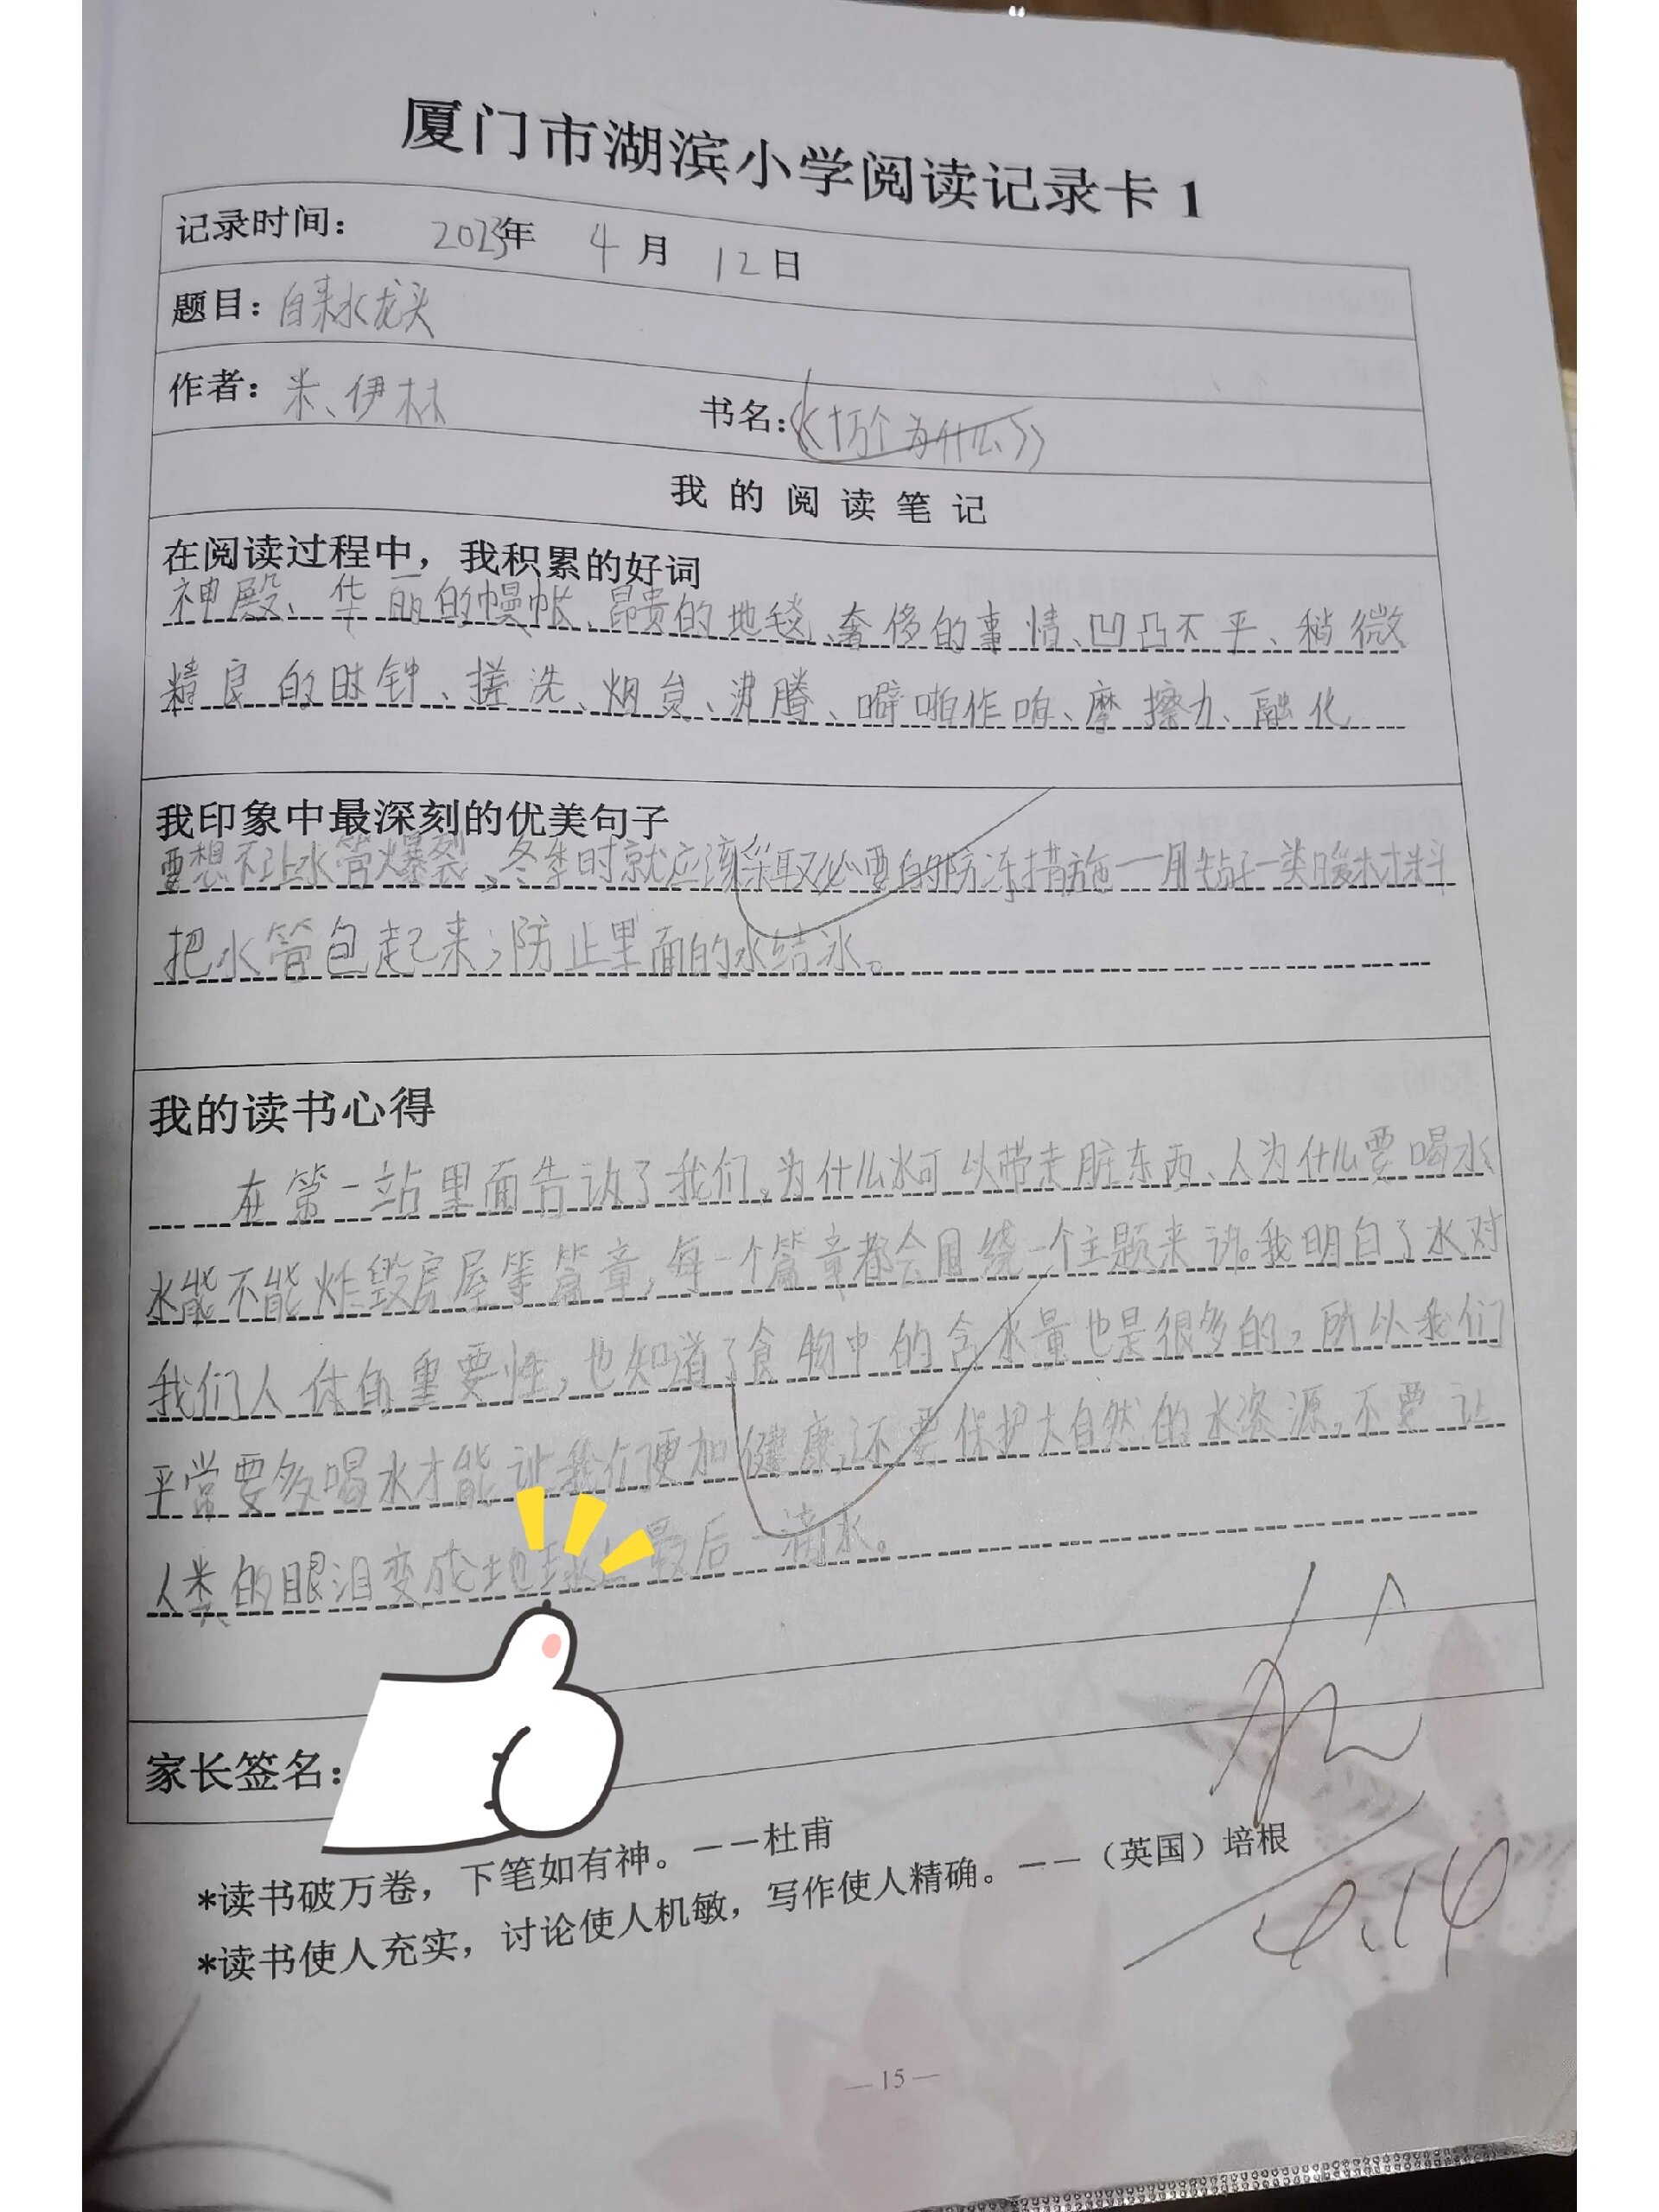 厦门市湖滨小学阅读记录卡1
记录时间： 2023年 4月 12日
题目：自来水龙头
作者：米、伊林 书名：《十万个为什么》
我的阅读笔记
在阅读过程中，我积累的好词
神殿、华丽的幔帐、昂贵的地毯、奢侈的事情、凹凸不平、稍微
精良的时钟、搓洗、烟囱、沸腾、噼啪作响、摩擦力、融化
我印象中最深刻的优美句子
要想不让水管爆裂，冬季时就应该采取必要的防冻措施——用毡子一类暖材料
把水管包起来，防止里面的水结冰。
我的读书心得
在第一站里面告诉了我们，为什么水可以带走脏东西、人为什么要喝水
水能不能炸毁房屋等篇章，每一个篇章都会围绕一个主题来讲。我明白了水对
我们人体的重要性，也知道了食物中的含水量也是很多的。所以我们
平常要多喝水才能让我们更加健康，还要保护大自然的水资源，不要让
人类的眼泪变成地球上最后一滴水。
家长签名：
*读书破万卷，下笔如有神。——杜甫
*读书使人充实，讨论使人机敏，写作使人精确。——（英国）培根
4.14
—15—